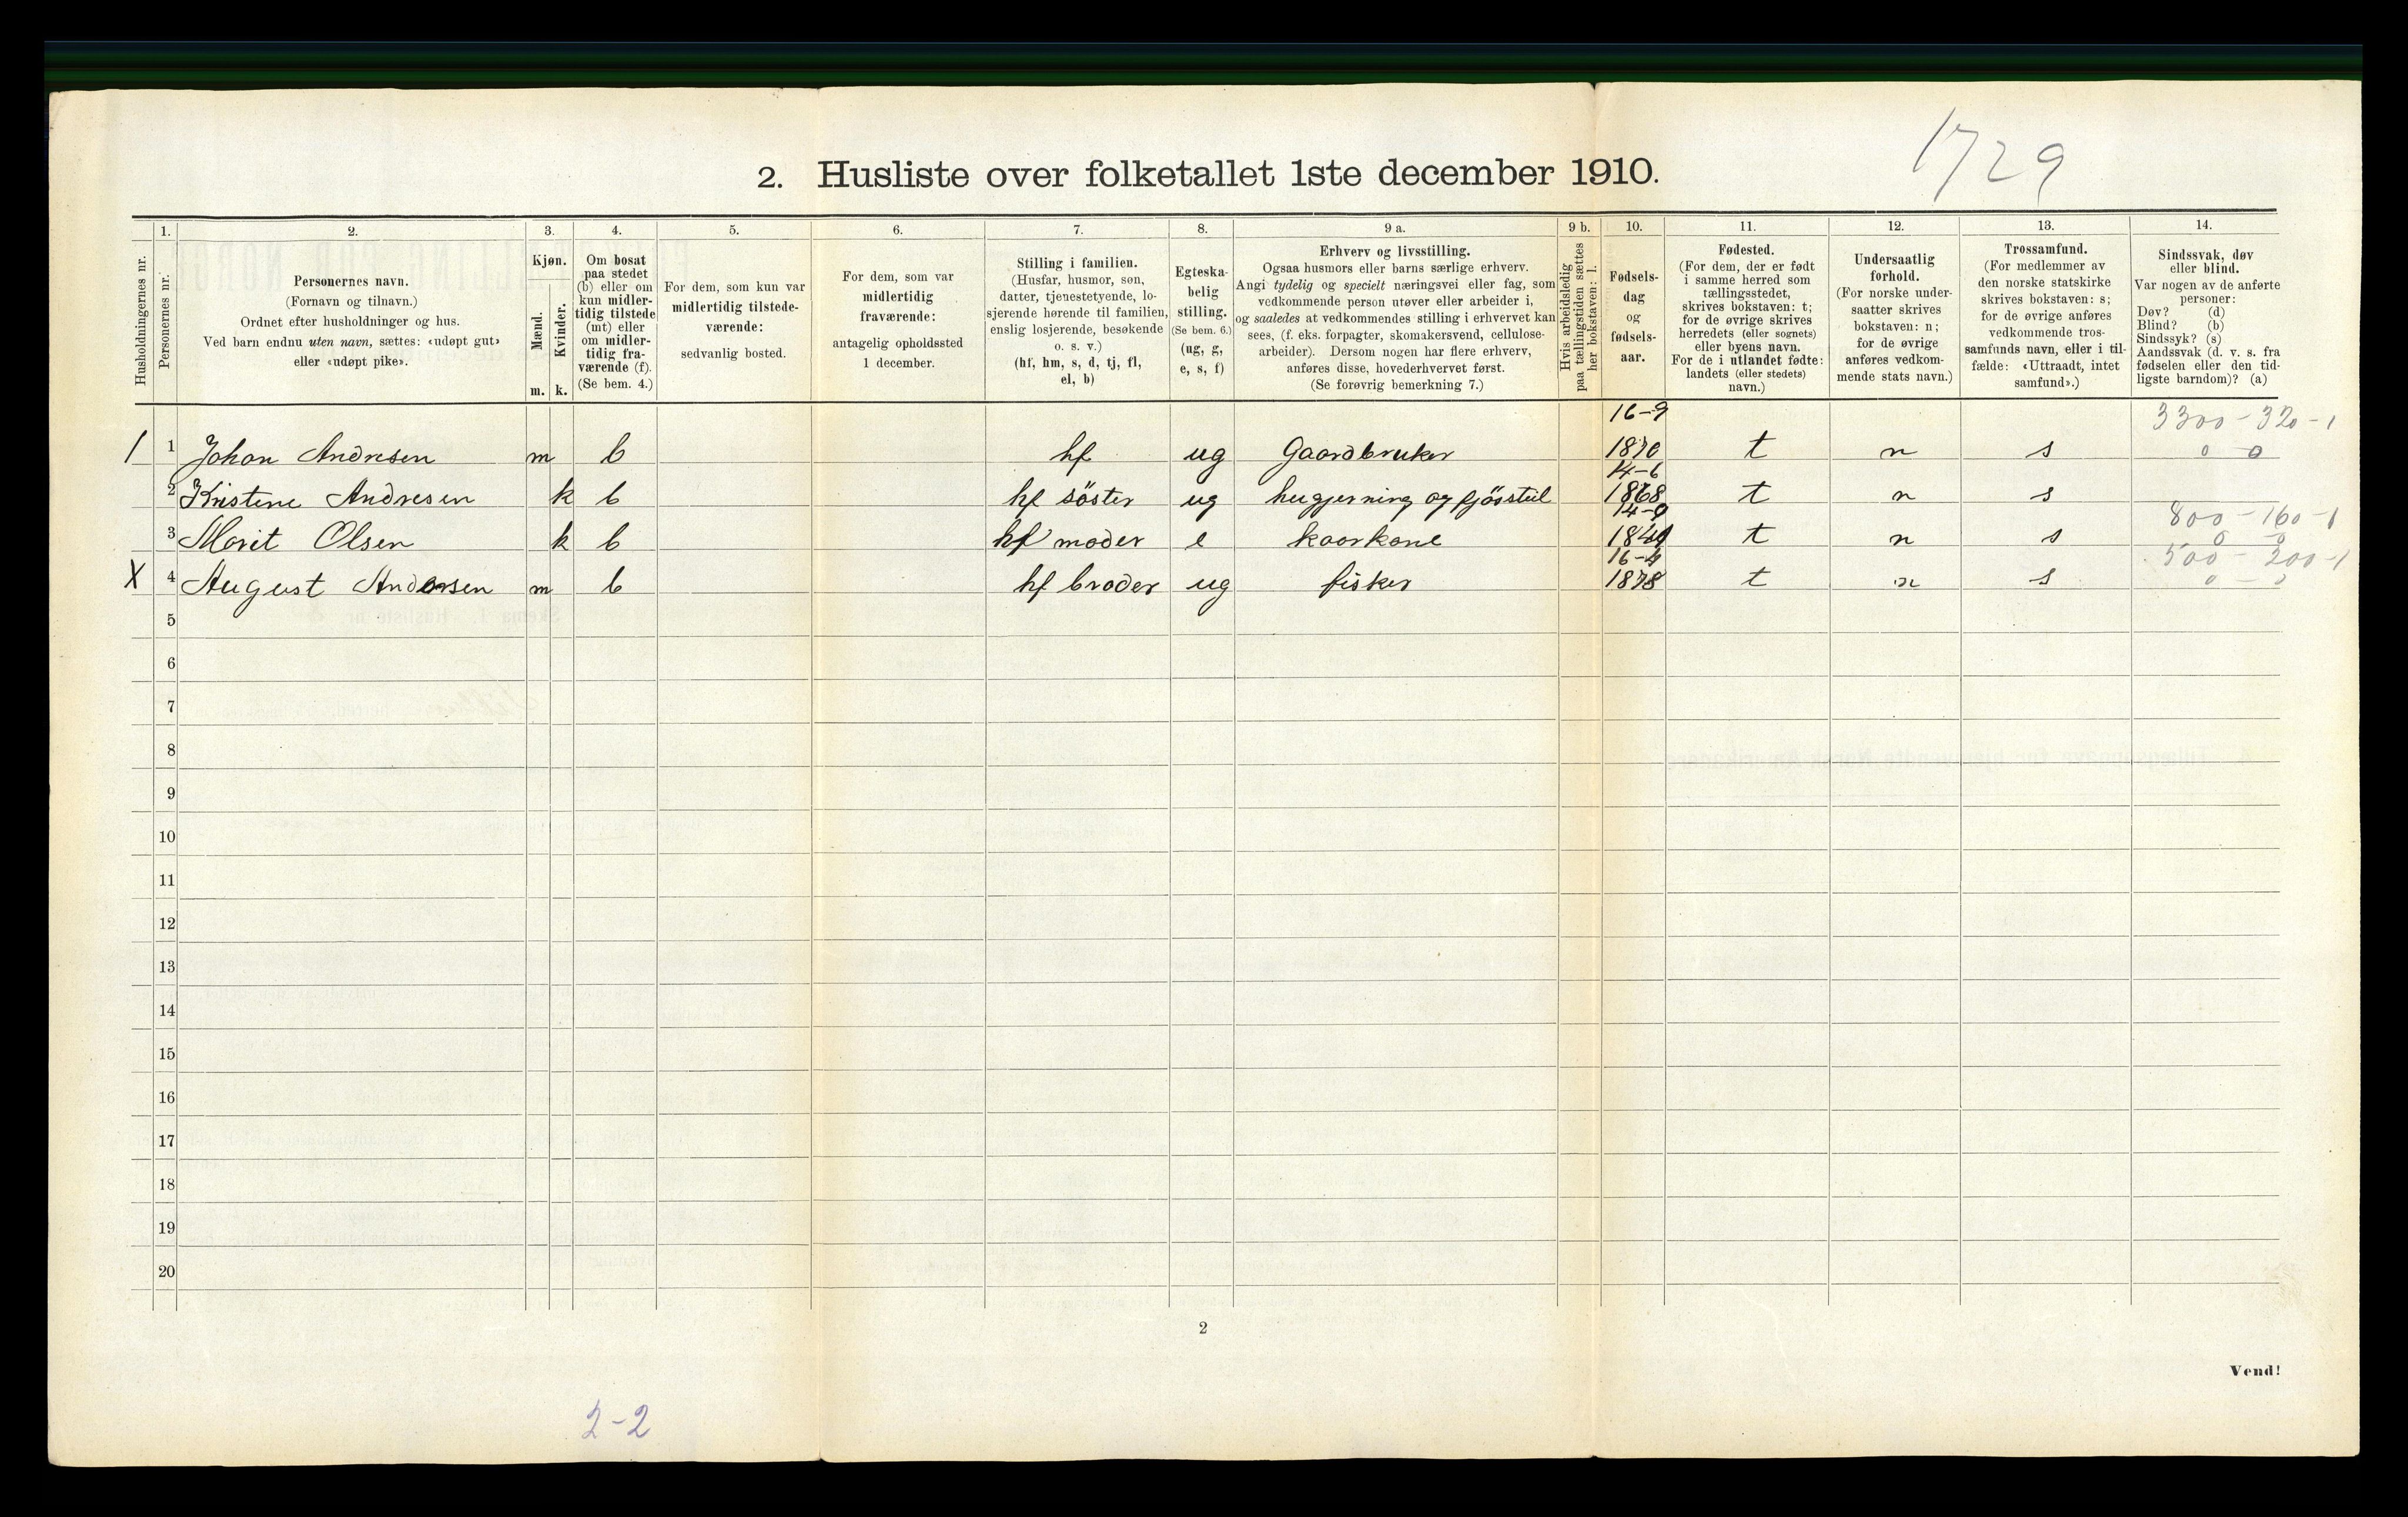 1729
2. Husliste over folketallet 1ste december 1910.
1. 2. 3. 4. 5. 6. 7. 8. 9 a. 9 b. 10. 11. 12. 13. 14.
Husholdningernes nr.
Personernes nr.
Personernes navn.
(Fornavn og tilnavn.)
Ordnet efter husholdninger og hus.
Ved barn endnu uten navn, sættes: «udøpt gut»
eller «udøpt pike».
Kjøn.
Mænd.
Kvinder.
m. k.
Om bosat
paa stedet
(b) eller om
kun midler-
tidig tilstede
(mt) eller
om midler-
tidig fra-
værende (f).
(Se bem. 4.)
For dem, som kun var
midlertidig tilstede-
værende:
sedvanlig bosted.
For dem, som var
midlertidig
fraværende:
antagelig opholdssted
1 december.
Stilling i familien.
(Husfar, husmor, søn,
datter, tjenestetyende, lo-
sjerende hørende til familien,
enslig losjerende, besøkende
o. s. v.)
(hf, hm, s, d, tj, fl,
el, b)
Egteska-
belig
stilling.
(Se bem. 6.)
(ug, g,
e, s, f)
Erhverv og livsstilling.
Ogsaa husmors eller barns særlige erhverv.
Angi tydelig og specielt næringsvei eller fag, som
vedkommende person utøver eller arbeider i,
og saaledes at vedkommendes stilling i erhvervet kan
sees, (f. eks. forpagter, skomakersvend, cellulose-
arbeider). Dersom nogen har flere erhverv,
anføres disse, hovederhvervet først.
(Se forøvrig bemerkning 7.)
Hvis arbeidsledig
paa tællingstiden sættes
her bokstaven: l.
Fødsels-
dag
og
fødsels-
aar.
Fødested.
(For dem, der er født
i samme herred som
tællingsstedet,
skrives bokstaven: t;
for de øvrige skrives
herredets (eller sognets)
eller byens navn.
For de i utlandet fødte:
landets (eller stedets)
navn.)
Undersaatlig
forhold.
(For norske under-
saatter skrives
bokstaven: n;
for de øvrige
anføres vedkom-
mende stats navn.)
Trossamfund.
(For medlemmer av
den norske statskirke
skrives bokstaven: s;
for de øvrige anføres
vedkommende tros-
samfunds navn, eller i til-
fælde: «Uttraadt, intet
samfund».)
Sindssvak, døv
eller blind.
Var nogen av de anførte
personer:
Døv? (d)
Blind? (b)
Sindssyk? (s)
Aandssvak (d. v. s. fra
fødselen eller den tid-
ligste barndom)? (a)
16-9 3300-320-1
1 1 Johan Andresen m b hf ug Gaardbruker 1870 t n s 0 0
14-6
2 Kristene Andresen k b hf söster ug hugjerning og fjösstel 1868 t n s
800-160-1
3 Marit Olsen k b hf moder e kaarkone t n s 0 0
500-200-1
X 4 August Andersen m b hf broder ug fisker 1878 t n s
5
6
7
8
9
10
11
12
13
14
15
16
17
18
19
20
2
Vend!
2-2